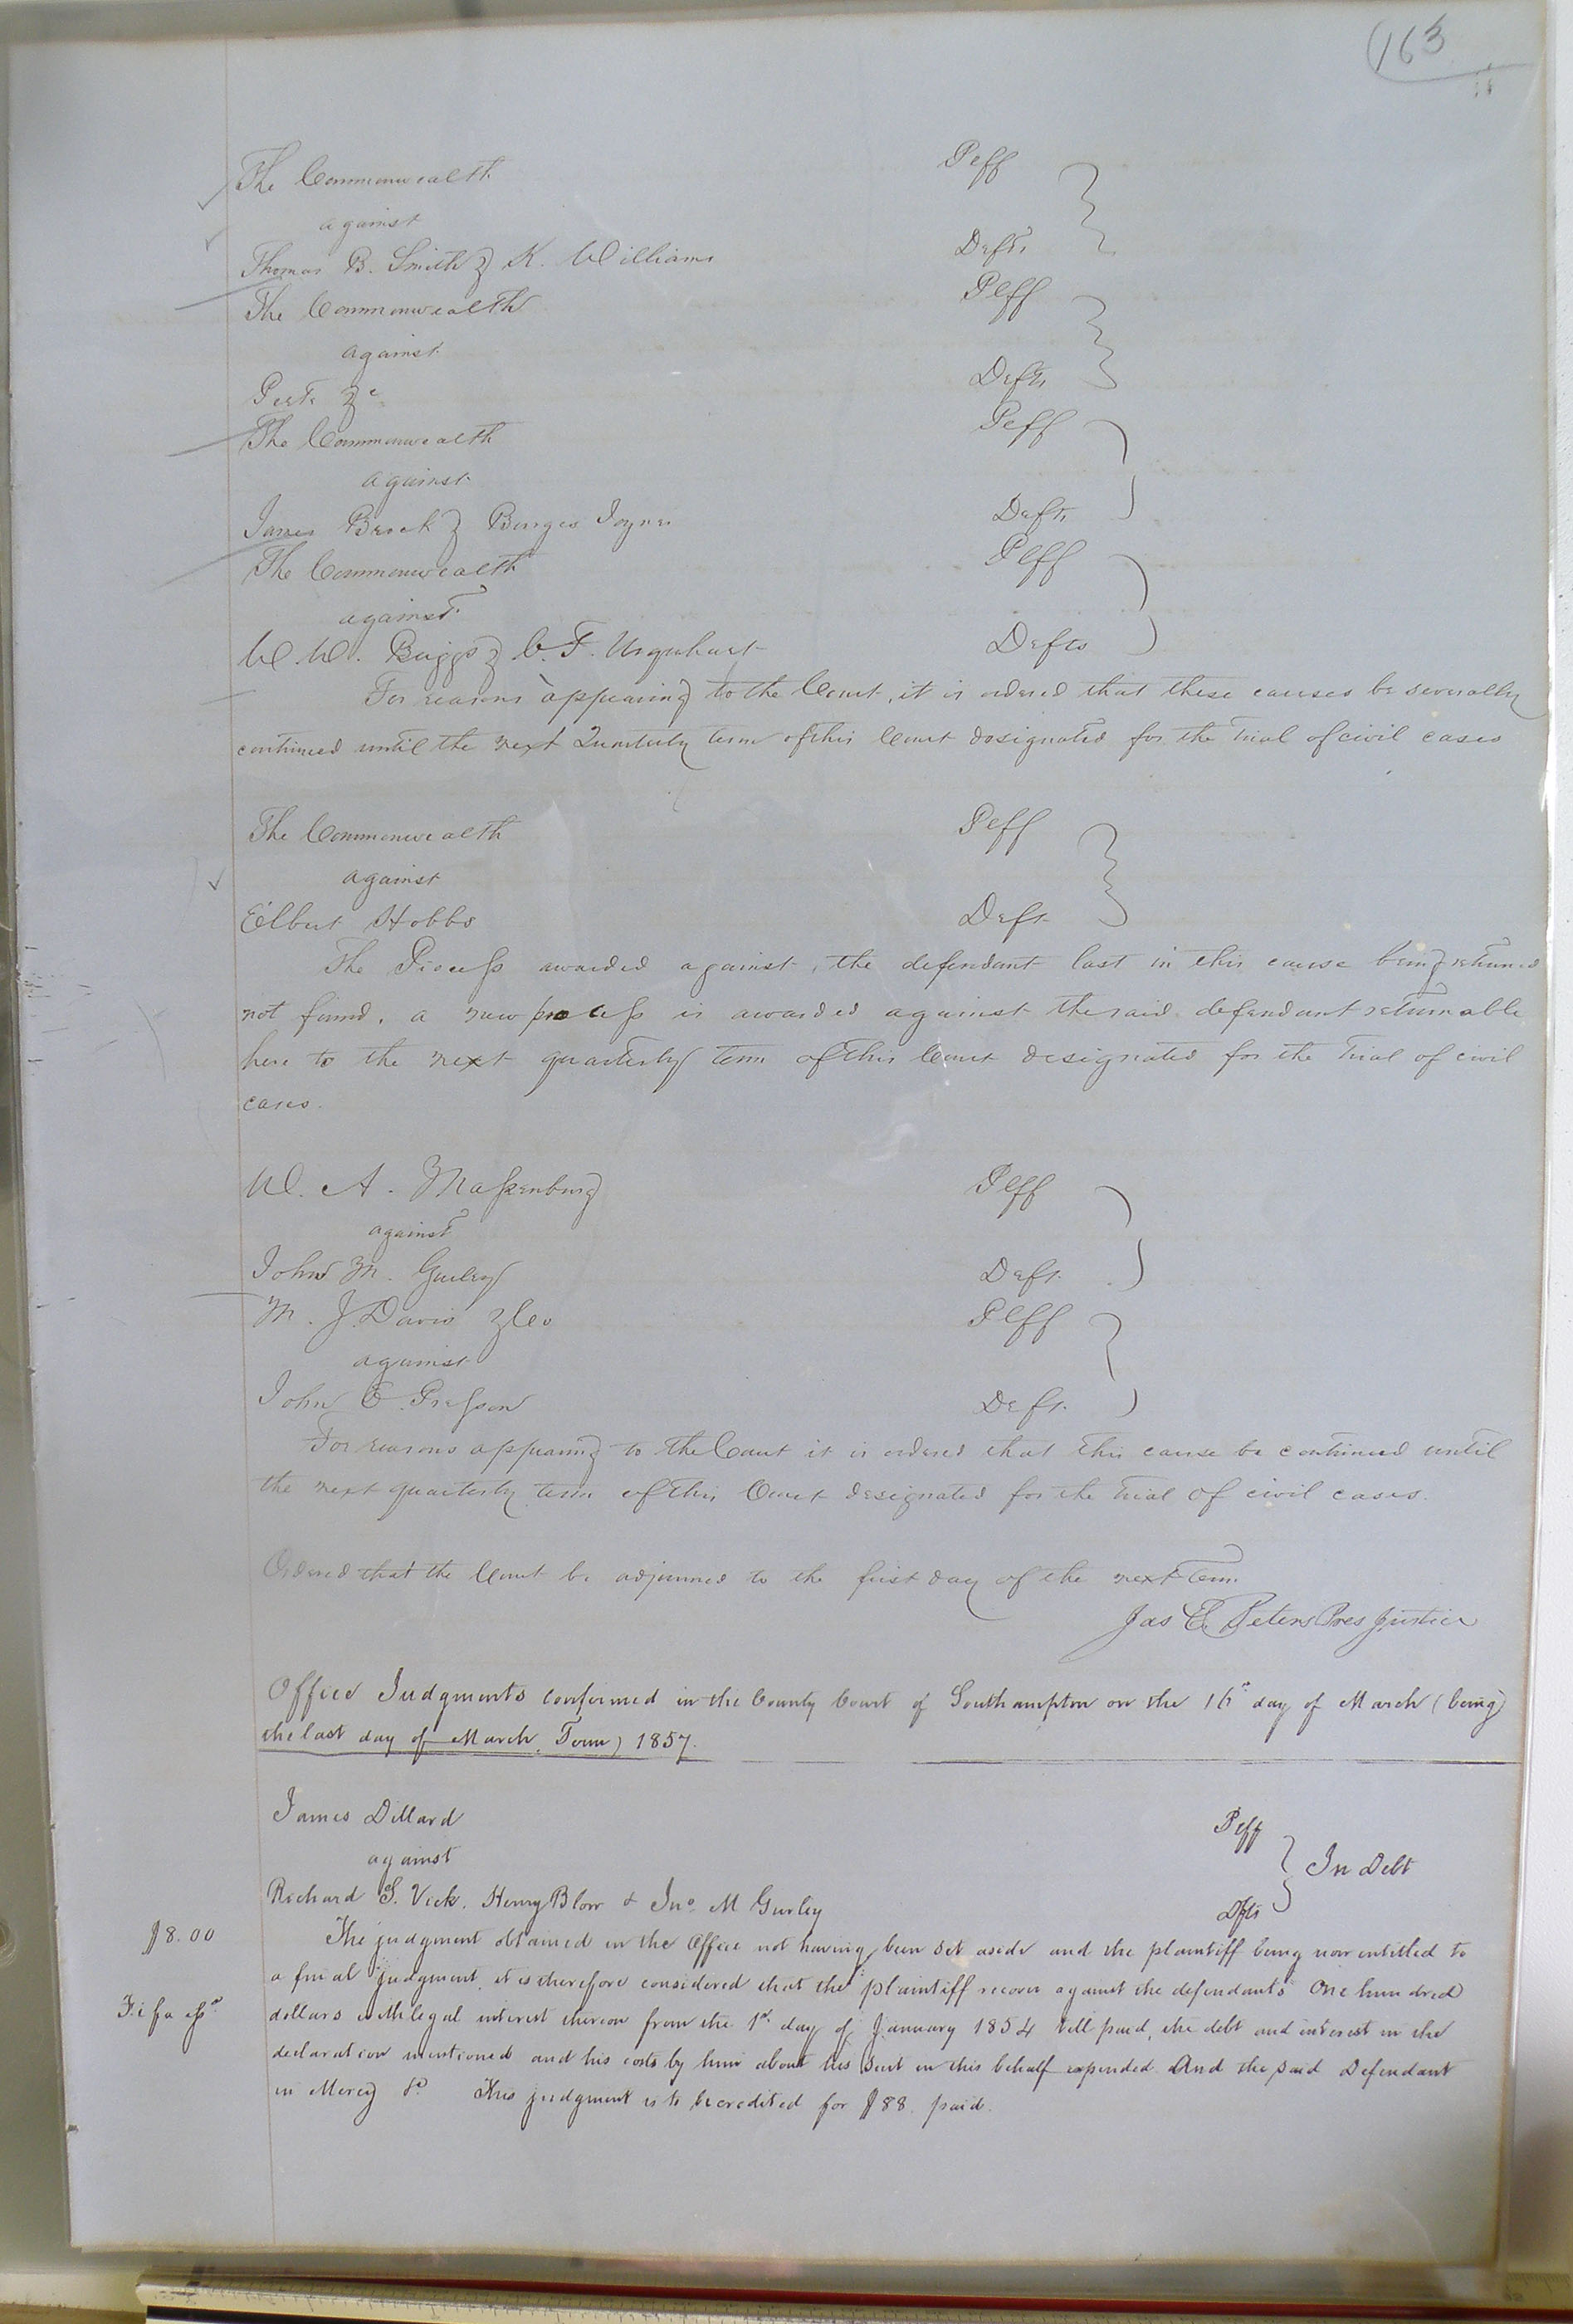 163
The Commonwealth Plff
against
Thomas B. Smith & K. Williams Defts
The Commonwealth Plff
against
Same &c Defts
The Commonwealth Plff
against
James Brock & Burges Joyner Defts
The Commonwealth Plff
against
W. W. Briggs & C. F. Urquhart Defts
For reasons appearing to the Court, it is ordered that these causes be severally
continued until the next Quarterly term of this Court designated for the trial of civil cases
The Commonwealth Plff
against
Elbert Hobbs Deft.
The Process awarded against, the defendant last in this cause being returned
not found, a new process is awarded against the said defendant returnable
here to the next quarterly term of this Court designated for the trial of civil
cases.
W. A. Massenburg Plff
against
John M. Gurley Deft.
M. J. Davis & Co Plff
against
John E. Presson Deft.
For reasons appearing to the Court it is ordered that this cause be continued until
the next quarterly term of this Court designated for the trial of civil cases.
Ordered that the Court be adjourned to the first day of the next Term.
Jas E. Peters Pres Justice
Office Judgments confirmed in the County Court of Southampton on the 16th day of March (being
the last day of March Term) 1857.
James Dillard Plff
against In Debt
Richard S. Vick, Henry Blow & Jno. M Gurley Dfts
$8.00 The judgment obtained in the Office not having been set aside and the plaintiff being now entitled to
a final judgment, it is therefore considered that the plaintiff recover against the defendants One hundred
Fi fa dollars with legal interest thereon from the 1st day of January 1854 till paid, the debt and interest in the
declaration mentioned and his costs by him about his suit in this behalf expended. And the said Defendant
in Mercy &c This judgment is to be credited for $88. paid.